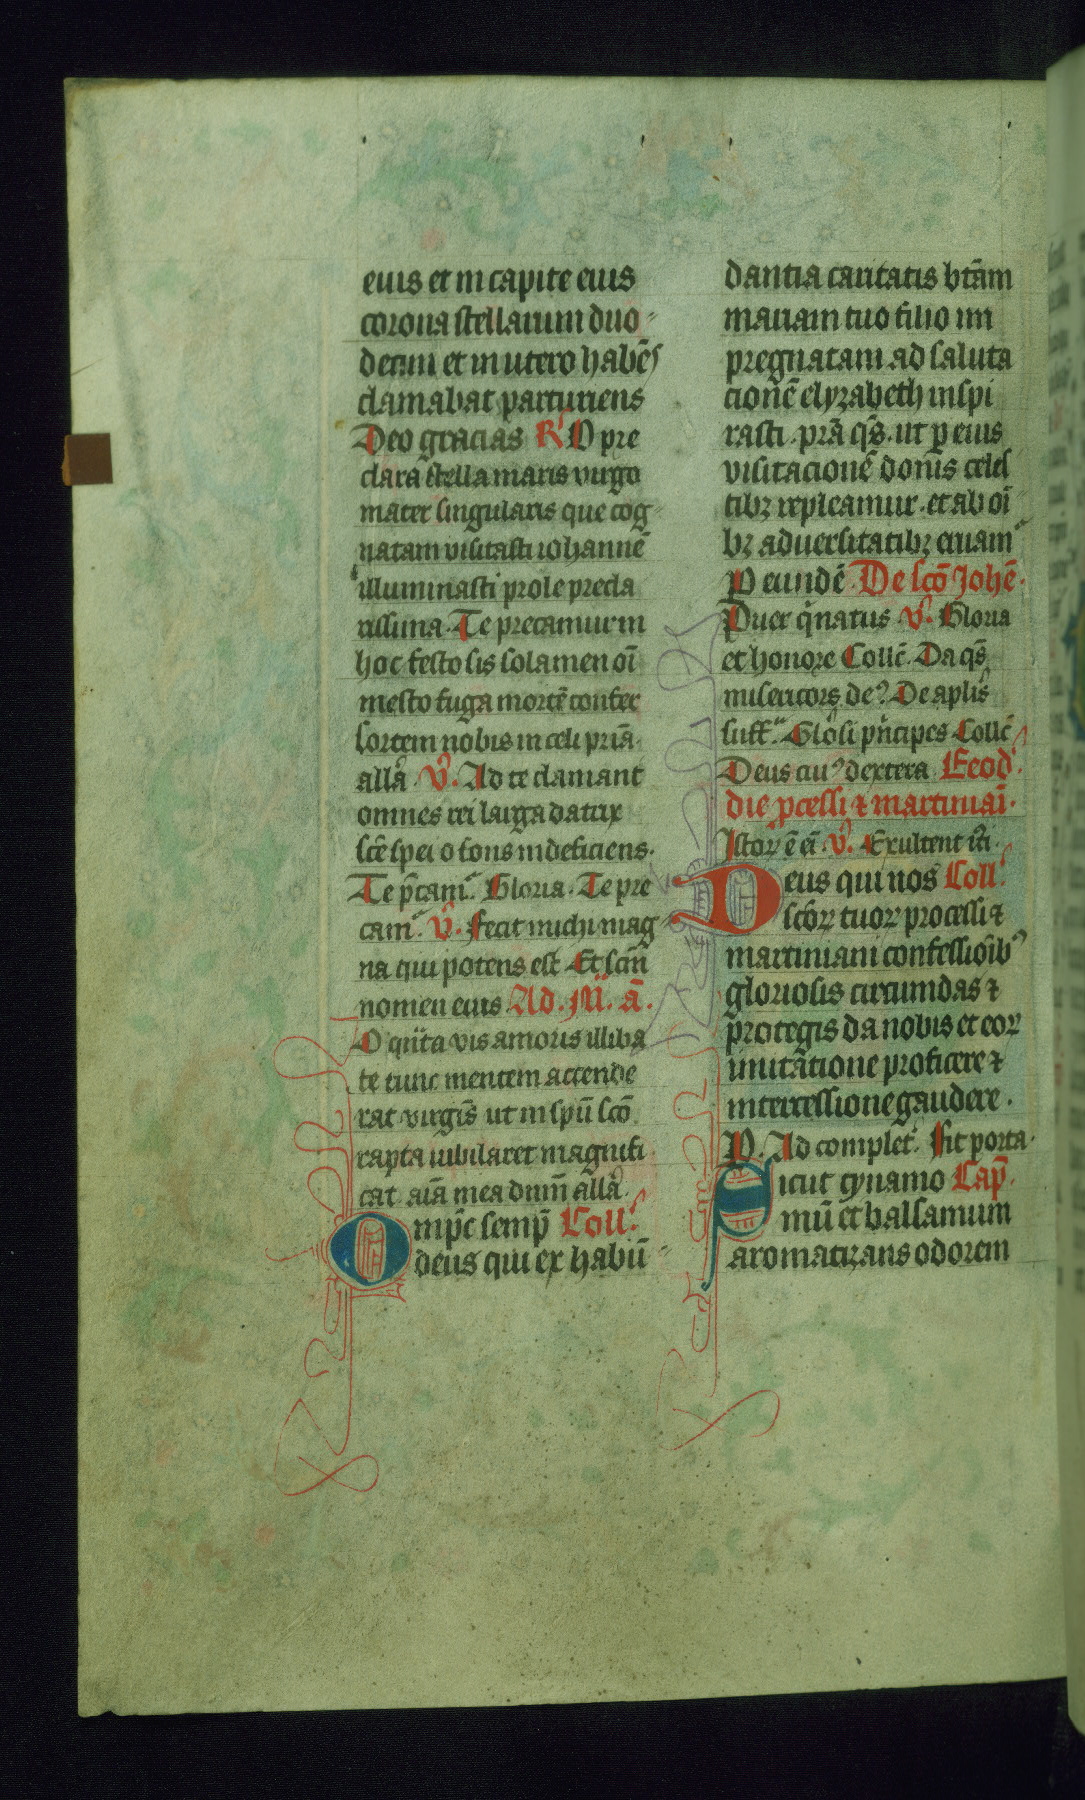 eius et in capite eius
corona stellarum duo
decim et in utero habe͞s
clamabat parturiens
Deo gracias R͛ O pre
clara stella maris virgo
mater singularis que cog
natam visitasti iohanne͞
illuminasti prole precla
rissima. Te precamur in
hoc festo sis solamen oi͞
mesto fuga morte͞ confer
sortem nobis in celi pria͞
alla͞ V͛. Ad te clamant
omnes rei larga datrix
sce͞ spei o fons indeficiens.
Te p͞cam͛ Gloria. Te pre
cam͛ V͛. Fecit michi mag
na qui potens est Et scm͞
nomen eius Ad. M͞. a͞.
O qu͞ta vis amoris illiba
te tunc mentem accende
rat virgis͞ ut in spu͞ sco͞
rapta iubilaret magnifi
cat aia͞ mea dnm͞ alla͞.
Omp͞c semp͞ Coll͛
deus qui ex habu͞
dantia caritatis bta͞m
mariam tuo filio im
pregnatam ad saluta
cione͞ elyzabeth inspi
rasti. pra͞ qs͞. ut p̱ eius
visitacione͞ donis celes
tibꝫ repleamur. et ab oi͞
bꝫ adversitatibꝫ eruam͛
P̱ eunde͞ De sco͞ Johe͞.
Puer q͛ natus V͛. Gloria
et honore Colle͞. Da qs͞
misericors deꝰ. De aplis͞
suff͛. Glo͞si pn͛cipes Colle͞
Deus cuiꝰ dextera Eeod͛.
die p̱cessi ⁊ martinia͞i.
Istoꝝ e͞ ei͞. V͛. Exultent iti͞
Deus qui nos Coll͛
sco͞ꝝ tuoꝝ processi ⁊
martiniani confessio͞ibꝰ
gloriosis circumdas ⁊
protegis da nobis et eoꝝ
imitatione proficere ⁊
intercessione gaudere.
P̱. Ad complet͛. Sit porta.
Sicut cynamo Cap͞.
mu͞ et balsamum
aromatizans odorem